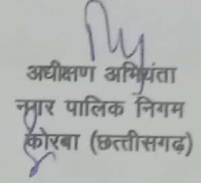 अधीक्षण अभियंता
नगर पालिक निगम
कोरबा (छत्तीसगढ़)